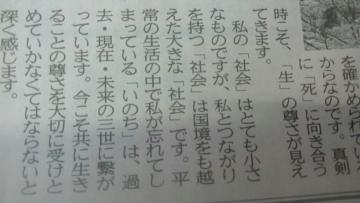 を確かめられてい
からなのです。真剣
に「死」に向き合う
時こそ、「生」の尊さが見え
てきます。
私の「社会」はとても小さ
なものですが、私とつながり
を持つ「社会」は国境をも越
えた大きな「社会」です。平
常の生活の中で私が忘れてし
まっている「いのち」は、過
去・現在・未来の三世に繋が
っています。今こそ共に生き
ることの尊さを大切に受けと
めていかなくてはならないと
深く感じます。